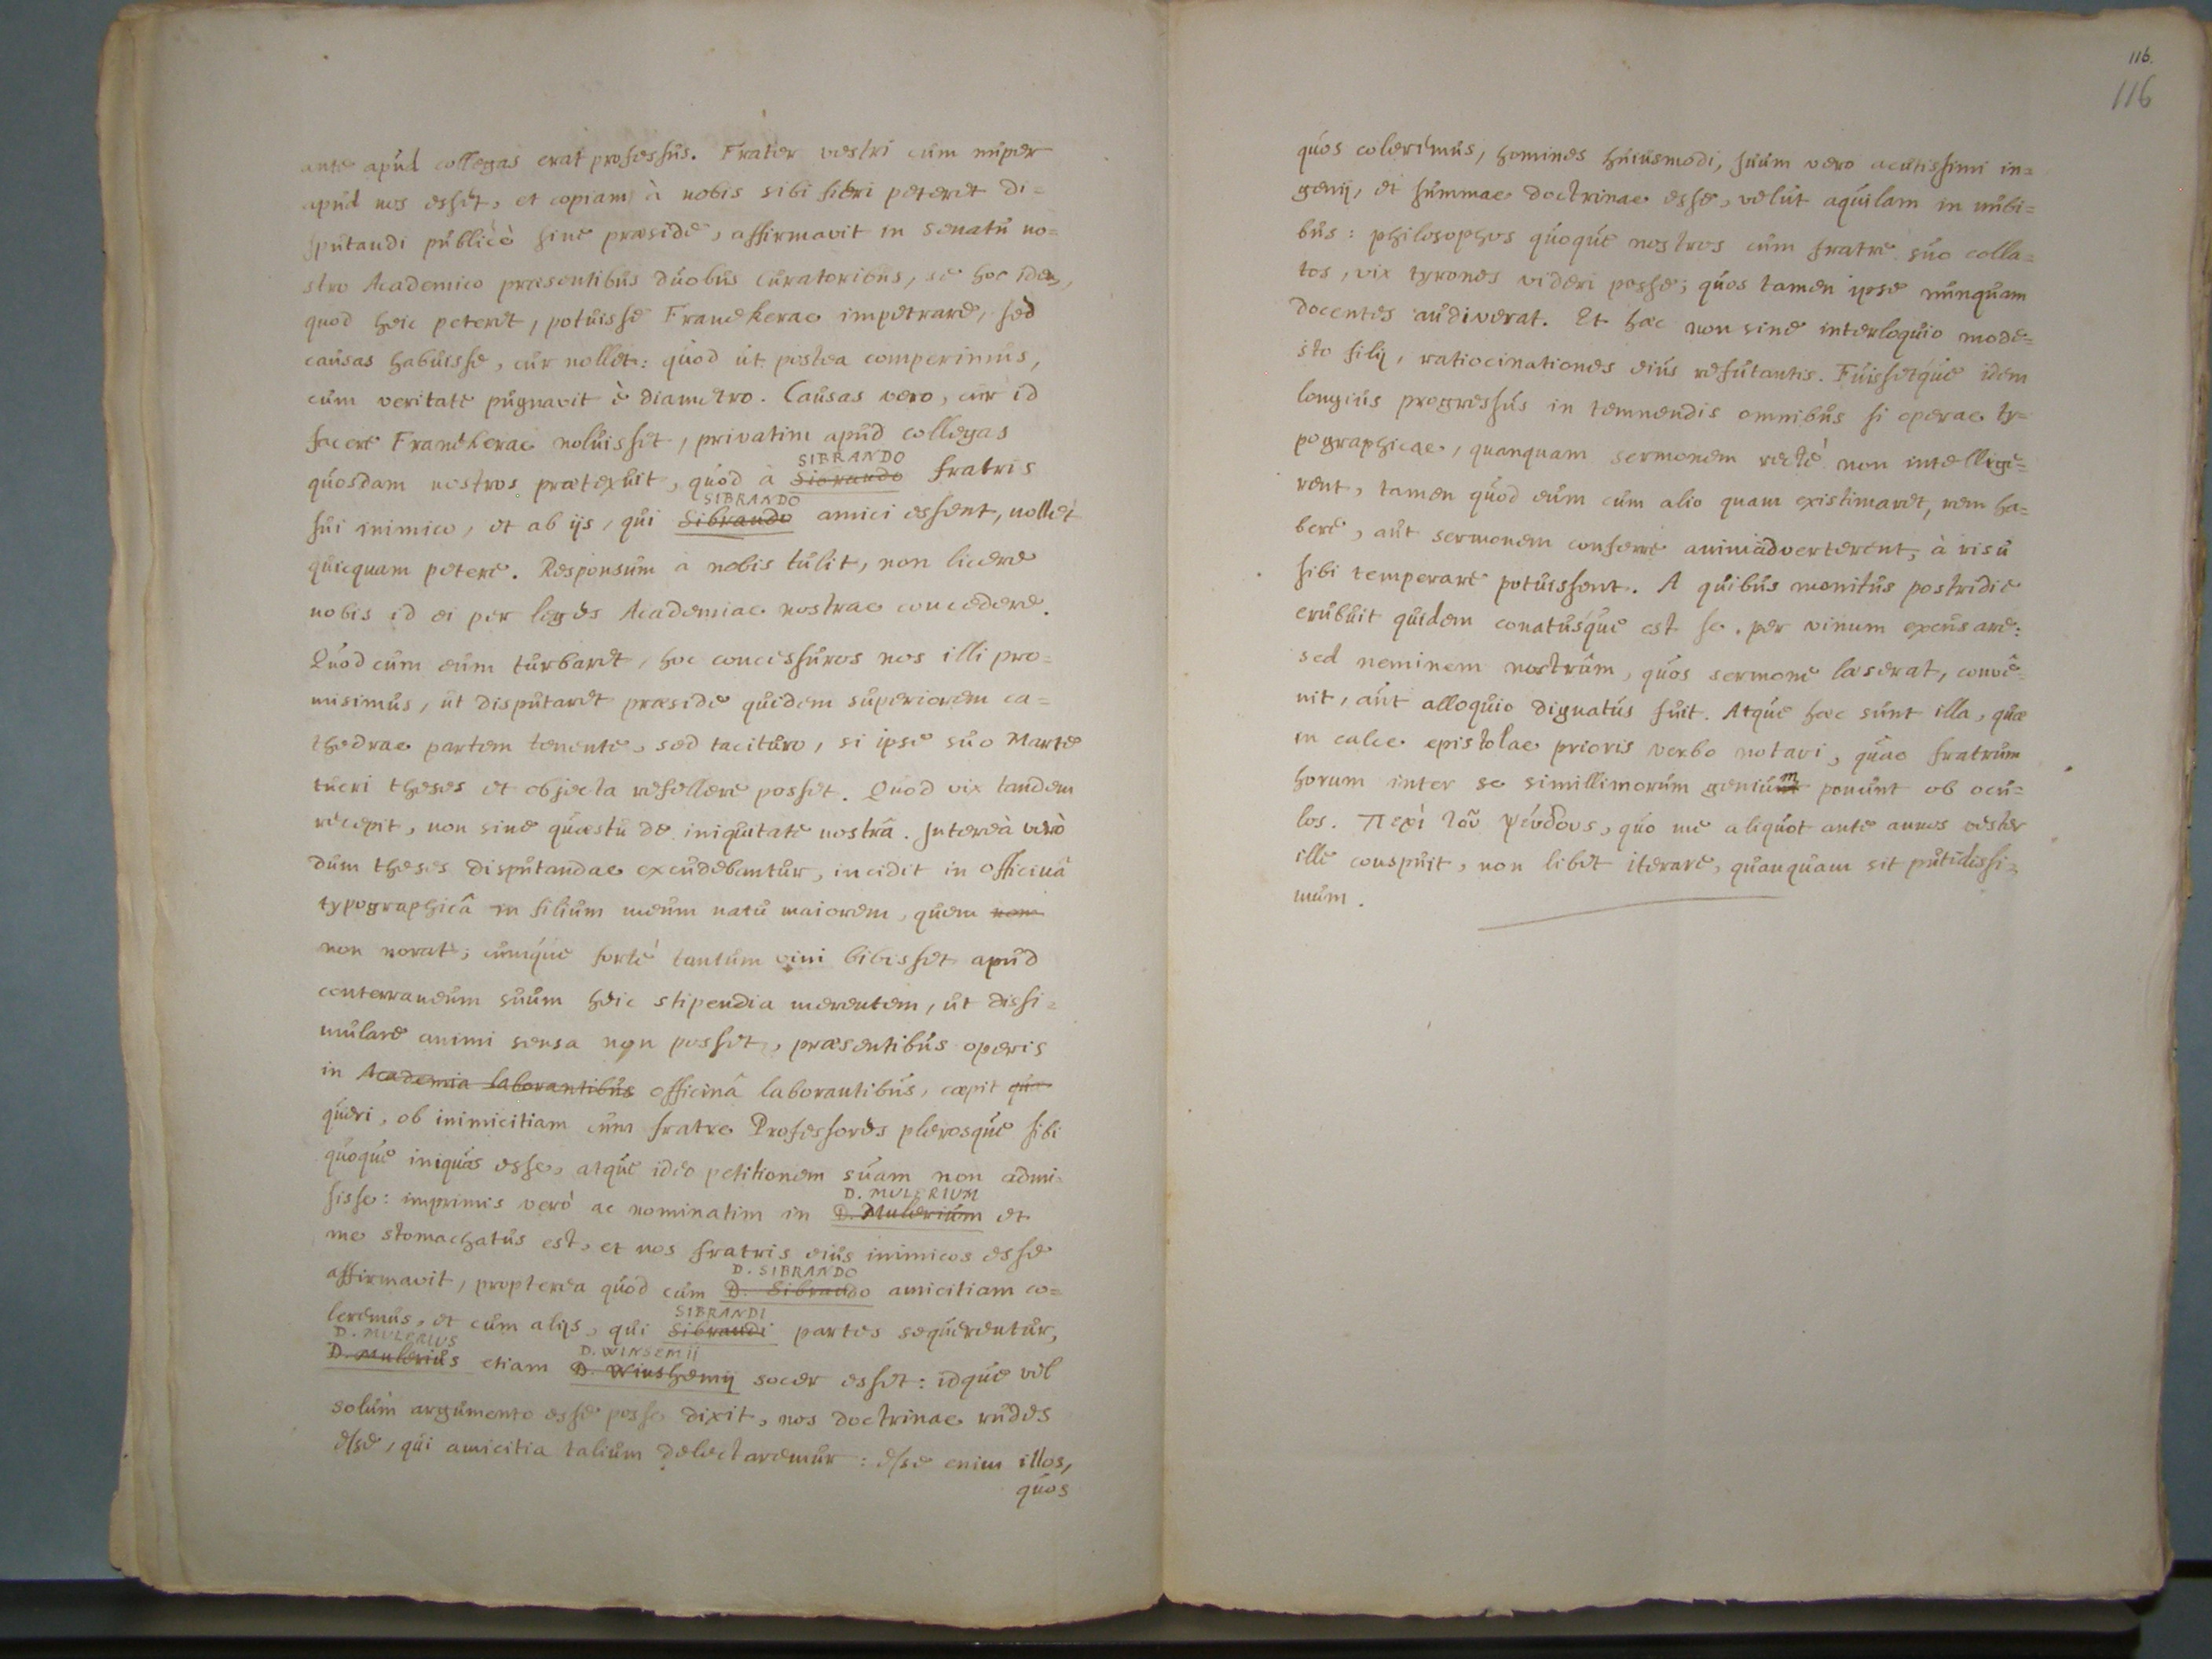 ante apud collegas erat professus. Frater vestri cum nuper
apud nos esset, et copiam à nobis sibi fieri peteret di=
sputandi publicè sine præside, affirmavit in Senatu no=
stro Academico præsentibus duobus Curatoribus, se hoc idem,
quod heic peteret, potuisse Franekerae impetrare, sed
causas habuisse, cur nollet: quod ut postea comperimus,
cum veritate pugnavit è diametro. Causas vero, cur id
facere Franekerae noluisset, privatim apud collegas
SIBRANDO
quosdam nostros prætexuit, quod à Sibrando fratris
SIBRANDO
sui inimico, et ab ijs, qui Sibrando amici essent, nollet
quicquam petere. Responsum a nobis tulit, non licere
nobis id ei per leges Academiae nostrae concedere.
Quod cum eum turbaret, hoc concessuros nos illi pro=
misimus, ut disputaret præside quidem superiorem ca=
thedrae partem tenente, sed tacituro, si ipse suo Marte
tueri theses et objecta refellere posset. Quod vix tandem
recepit, non sine quæstu de iniquitate nostrâ. Intereà verò
dum theses disputandae excudebantur, incidit in officinâ
typographicâ in filium meum natu maiorem, quem non
non norat; cumque fortè tantum vini bibisset apud
conterraneum suum heic stipendia merentem, ut dissi=
mulare animi sensa non posset, præsentibus operis
in Academia laborantibus officinâ laborantibus, cœpit quæ
queri, ob inimicitiam cum fratre Professores plerosque sibi
quoque iniquas esse, atque ideo petitionem suam non admi=
D. MULERIUM
sisse: imprimis verò ac nominatim in D. Mulerium et
me stomachatus est, et nos fratris eius inimicos esse
D. SIBRANDO
affirmavit, propterea quod cum D. Sibrando amicitiam co=
SIBRANDI
leremus, et cum alijs, qui Sibrandi partes sequerentur,
D. MULERIUS D. WINSEMII
D. Mulerius etiam D. Winshemij socer esset: idque vel
solum argumento esse posse dixit, nos doctrinae rudes
esse, qui amicitia talium delectaremur: esse enim illos,
quos
116.
116
quos coleremus, homines huiusmodi, suum vero acutissimi in=
genij, et summae doctrinae esse, velut aquilam in nubi=
bus: philosophos quoque nostros cum fratre suo colla=
tos, vix tyrones videri posse; quos tamen ipse nunquam
docentes audiverat. Et hæc non sine interloquio mode=
sto filij, ratiocinationes eius refutantis. Fuissetque idem
longius progressus in temnendis omnibus si operae ty=
pographicae, quanquam sermonem rectè non intellige=
rent, tamen quod eum cum alio quam existimaret, rem ha=
bere, aut sermonem conferre animadverterent, à risu
sibi temperare potuissent. A quibus monitus postridie
erubuit quidem conatusque est se per vinum excusare:
sed neminem nostrûm, quos sermone læserat, conve=
nit, aut alloquio dignatus fuit. Atque hæc sunt illa, quæ
in calce epistolae prioris verbo notavi, quae fratrum
horum inter se simillimorum genium ponunt ob ocu=
los. Περὶ τοῦ ψεύδους, quo me aliquot ante annos vester
ille conspuit, non libet iterare, quanquam sit putidissi=
mum.